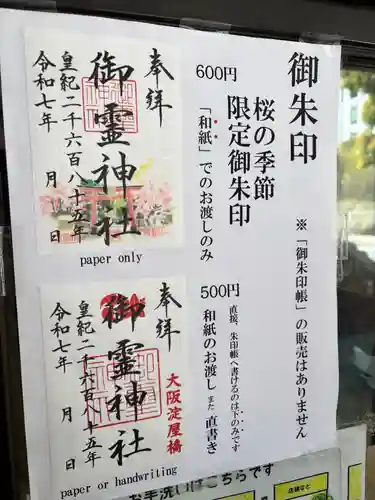 御朱印
※「御朱印帳」の販売はありません
桜の季節
限定御朱印
600円
「和紙」でのお渡しのみ
奉拝
御霊神社
皇紀二千六百八十五年
令和七年 月 日
paper only
500円
直接、朱印帳へ書けるのは下のみです
和紙のお渡し また 直書き
奉拝
大阪淀屋橋
御霊神社
皇紀二千六百八十五年
令和七年 月 日
paper or handwriting
お手洗いはこちらです